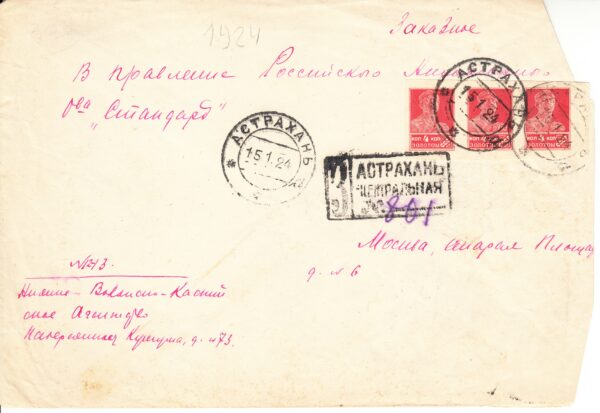 1924
Заказное
В правление Российского
О-ва "Стандарт"
АСТРАХАНЬ
15 1 24
АСТРАХАНЬ
15 1 24
КОП 4 КОП
ЗОЛОТОМ
ЗОЛОТОМ
КОП 3 КОП
ЗОЛОТОМ
АСТРАХАНЬ
ЦЕНТРАЛЬНАЯ
№ 801
Москва, Старая Площад
д. № 6
Нижне-Волжско-Каспий
ское Агентство
Набережная д. № 73.